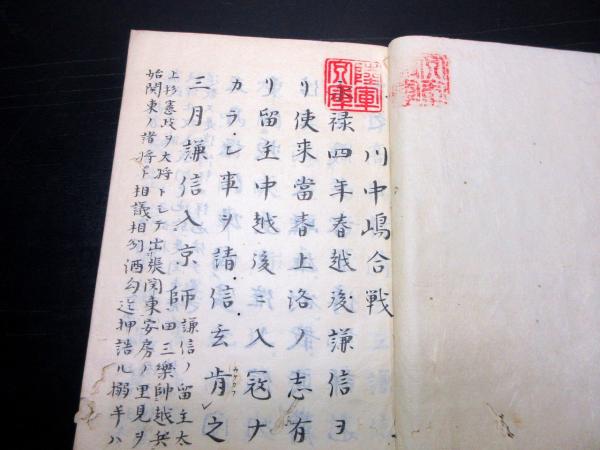 川中嶋合戦
禄四年春越後謙信ヲ
リ使来當春上洛ノ志有
リ留主中越後ニ入冦ナ
カラレ事ヲ請信玄肯之
三月謙信入京師
謙信ノ留主太
田三樂師越兵
上杉憲政ヲ大将トシテ出張関東安房ノ里見ヲ
始関東ノ諸将ト相議相列酒勾迄押詰ル搦手ハ
陸軍
文庫